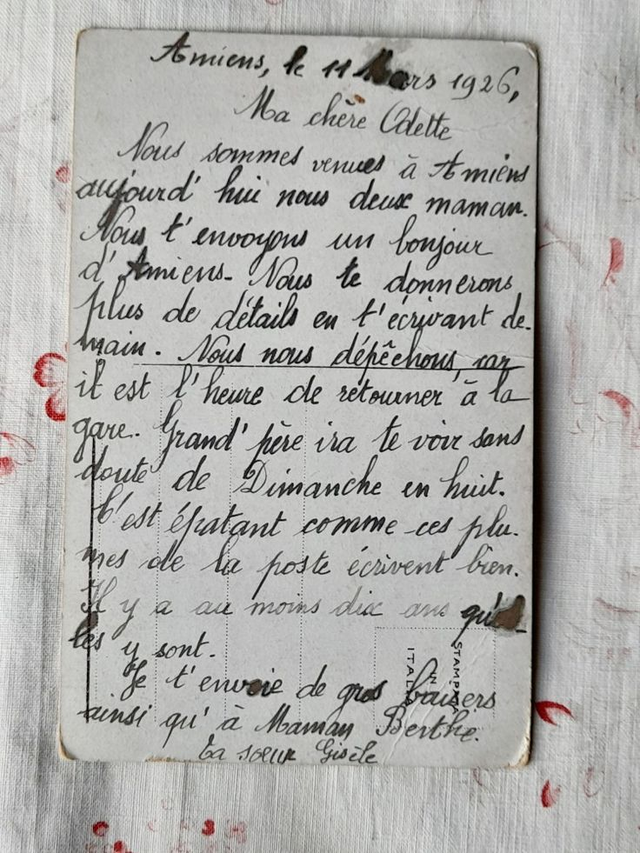 Amiens, le 11 Mars 1926,
Ma chère Odette
Nous sommes venues à Amiens
aujourd' hui nous deux maman.
Nous t'envoyons un bonjour
d'Amiens. Nous te donnerons
plus de détails en t'écrivant de-
main. Nous nous dépêchons, car
il est l'heure de retourner à la
gare. Grand' père ira te voir sans
doute de Dimanche en huit.
C'est épatant comme ces plu-
mes de la poste écrivent bien.
Il y a au moins dix ans qu'el-
les y sont.
Je t'envoie de gros baisers
ainsi qu' à Maman Berthe.
Ta soeur Gisèle
STAMPATA
IN
ITALIA